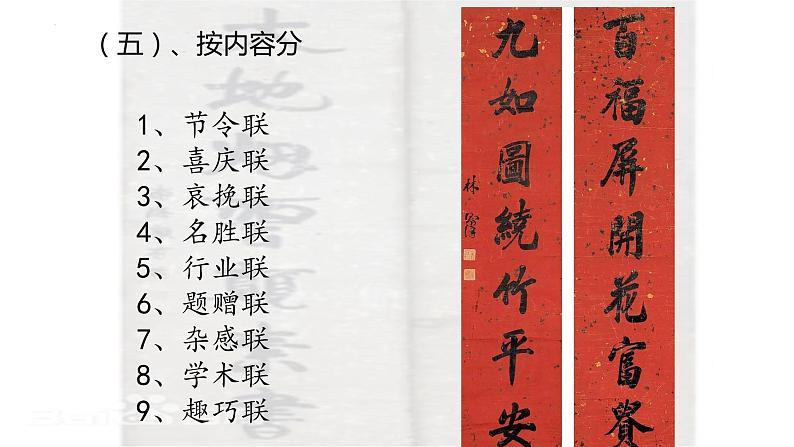 （五）、按内容分
1、节令联
2、喜庆联
3、哀挽联
4、名胜联
5、行业联
6、题赠联
7、杂感联
8、学术联
9、趣巧联
百福屏開花富貴
九如圖繞竹平安
林